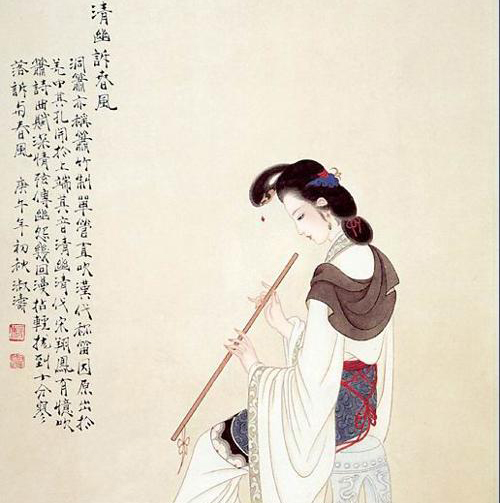 清幽訴春風
洞簫亦稱簫竹制單管直吹漢代称笛因原出於
羌中其孔開於上端其音清幽清代宋翔鳳有憶吹
簫詩曲賦深情弦傳幽怨幾回漫拈輕拢到十分寒
落訴与春風 庚午年初秋 淑濤